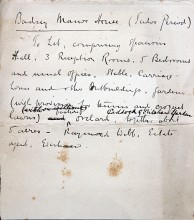 Badsey Manor House (Tudor Period)
To Let, comprising spacious
Hall, 3 Reception Rooms, 5 Bedrooms
and usual offices, Stable, Carriage
House and other Outbuildings, gardens
(with
tennis and croquet
lawns) and orchard, together about
5 acres - Raymond Estate
agent, Evesham